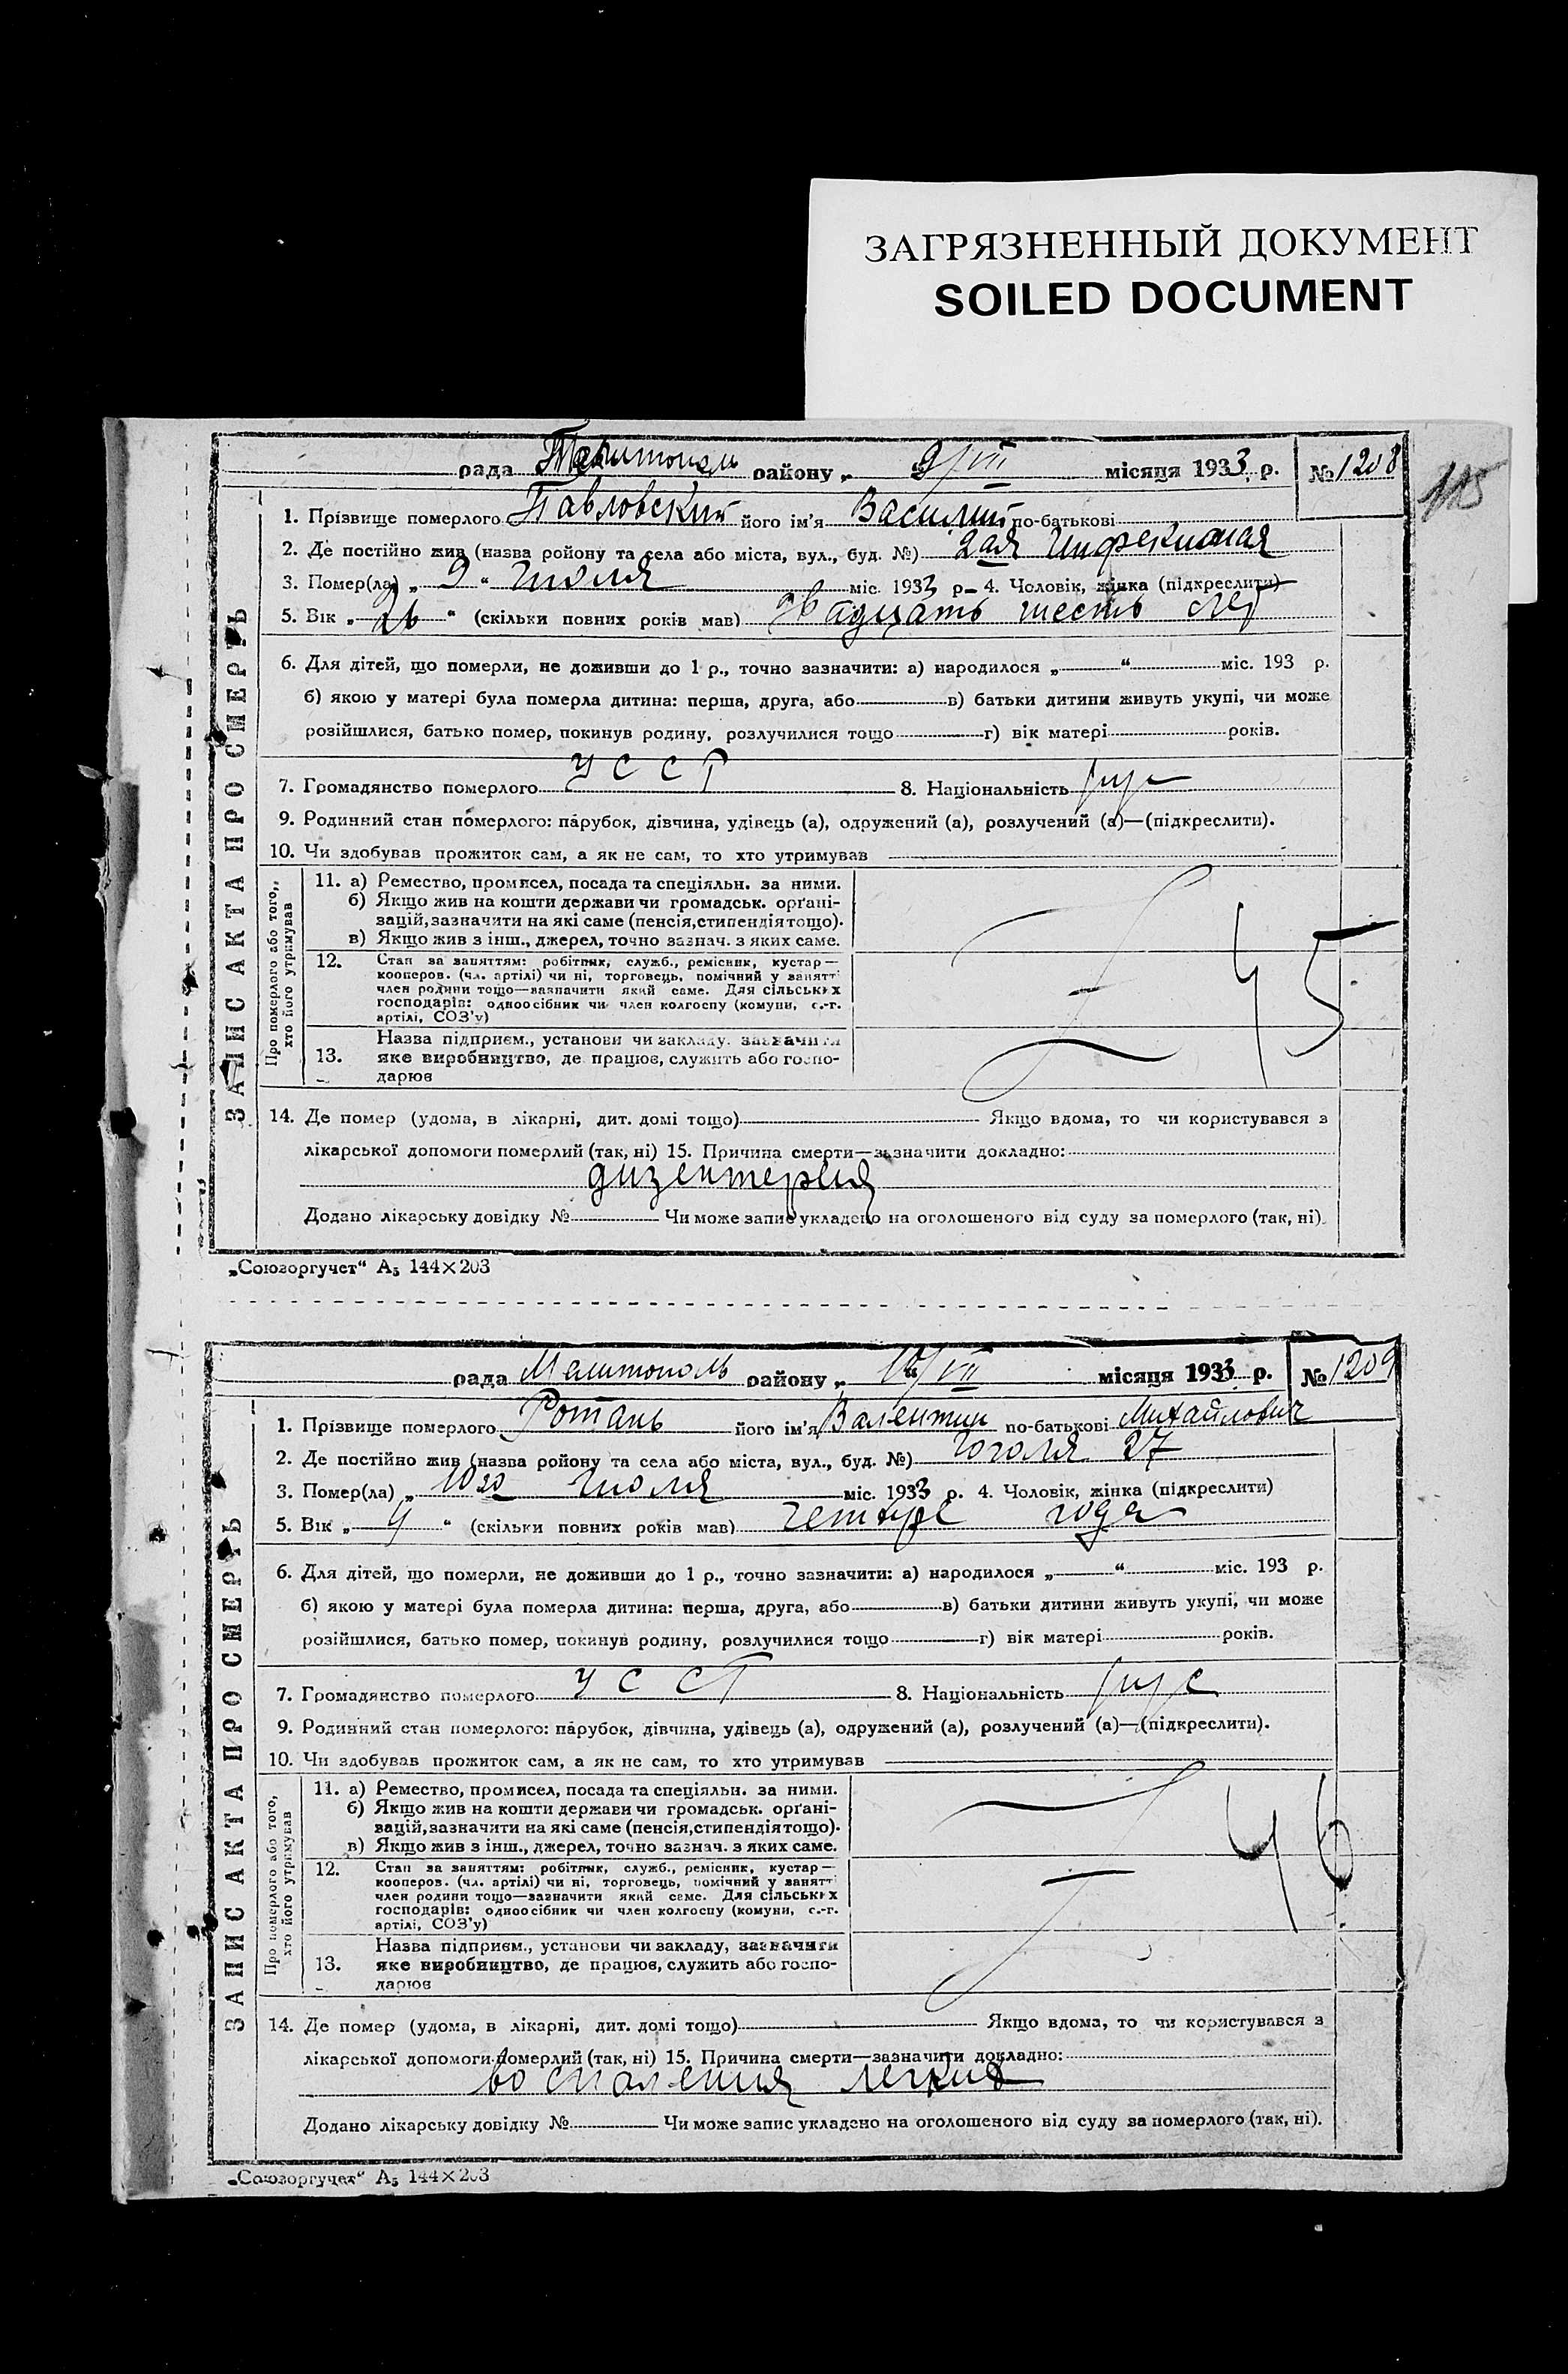 ЗАГРЯЗНЕННЫЙ ДОКУМЕНТ
SOILED DOCUMENT
115
рада Мелитополь району „ 9/VII місяця 1933 р. № 1208
1. Прізвище померлого Павловский його ім'я Василий по-батькові
2. Де постійно жив (назва ройону та села або міста, вул., буд. №) 2ая
3. Помер(ла) „ 9 “ Июля міс. 1933 р. 4. Чоловік, жінка (підкреслити)
5. Вік „ 26 “ (скільки повних років мав) двадцать шесть лет
6. Для дітей, що померли, не доживши до 1 р., точно зазначити: а) народилося „ “ міс. 193 р.
б) якою у матері була померла дитина: перша, друга, або в) батьки дитини живуть укупі, чи може
розійшлися, батько помер, покинув родину, розлучилися тощо г) вік матері років.
7. Громадянство померлого УССР 8. Національність рус
9. Родинний стан померлого: парубок, дівчина, удівець (а), одружений (а), розлучений (а)—(підкреслити).
10. Чи здобував прожиток сам, а як не сам, то хто утримував
ЗАПИС АКТА ПРО СМЕРТЬ
Про померлого або того,
хто його утримував
11. а) Ремество, промисел, посада та спеціяльн. за ними.
б) Якщо жив на кошти держави чи громадськ. орґані-
зацій, зазначити на які саме (пенсія, стипендія тощо).
в) Якщо жив з інш., джерел, точно зазнач. з яких саме.
12. Стан за заняттям: робітник, служб., ремісник, кустар—
кооперов. (чл. артілі) чи ні, торговець, помічний у занятт
член родини тощо—зазначити який саме. Для сільських
господарів: одноосібник чи член колгоспу (комуни, с.-г.
артілі, СОЗ'у)
45
13. Назва підприєм., установи чи закладу, зазначити
яке виробництво, де працює, служить або госпо-
дарює
14. Де помер (удома, в лікарні, дит. домі тощо) Якщо вдома, то чи користувався з
лікарської допомоги померлий (так, ні) 15. Причина смерти—зазначити докладно:
дизентерия
Додано лікарську довідку № Чи може запис укладено на оголошеного від суду за померлого (так, ні).
„Союзоргучет“ А5 144×203
рада Мелитополь району „ 10/VII місяця 1933 р. № 1209
1. Прізвище померлого Ротань його ім'я Валентин по-батькові Михайлович
2. Де постійно жив (назва ройону та села або міста, вул., буд. №) Гоголя 27
3. Помер(ла) „ 10го Июля міс. 1933 р. 4. Чоловік, жінка (підкреслити)
5. Вік „ 4 “ (скільки повних років мав) четыре года
6. Для дітей, що померли, не доживши до 1 р., точно зазначити: а) народилося „ “ міс. 193 р.
б) якою у матері була померла дитина: перша, друга, або в) батьки дитини живуть укупі, чи може
розійшлися, батько помер, покинув родину, розлучилися тощо г) вік матері років.
7. Громадянство померлого УССР 8. Національність рус
9. Родинний стан померлого: парубок, дівчина, удівець (а), одружений (а), розлучений (а)—(підкреслити).
10. Чи здобував прожиток сам, а як не сам, то хто утримував
ЗАПИС АКТА ПРО СМЕРТЬ
Про померлого або того,
хто його утримував
11. а) Ремество, промисел, посада та спеціяльн. за ними.
б) Якщо жив на кошти держави чи громадськ. орґані-
зацій, зазначити на які саме (пенсія, стипендія тощо).
в) Якщо жив з інш., джерел, точно зазнач. з яких саме.
12. Стан за заняттям: робітник, служб., ремісник, кустар—
кооперов. (чл. артілі) чи ні, торговець, помічний у занятт
член родини тощо—зазначити який саме. Для сільських
господарів: одноосібник чи член колгоспу (комуни, с.-г.
артілі, СОЗ'у)
46
13. Назва підприєм., установи чи закладу, зазначити
яке виробництво, де працює, служить або госпо-
дарює
14. Де помер (удома, в лікарні, дит. домі тощо) Якщо вдома, то чи користувався з
лікарської допомоги померлий (так, ні) 15. Причина смерти—зазначити докладно:
воспаления легких
Додано лікарську довідку № Чи може запис укладено на оголошеного від суду за померлого (так, ні).
„Союзоргучет“ А5 144×203